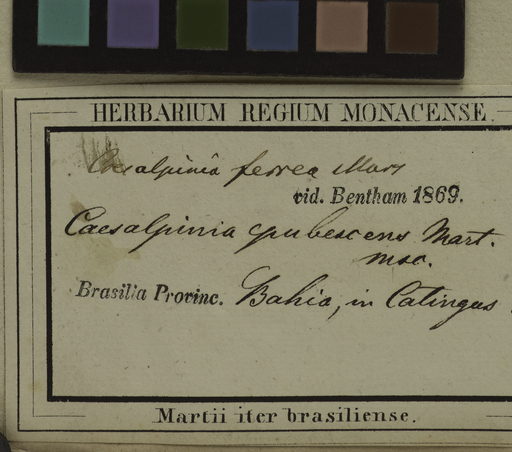 HERBARIUM REGIUM MONACENSE.
Caesalpinia ferrea Mart
vid. Bentham 1869.
Caesalpinia pubescens Mart.
msc.
Brasilia Provinc. Bahia, in Catingas.
Martii iter brasiliense.